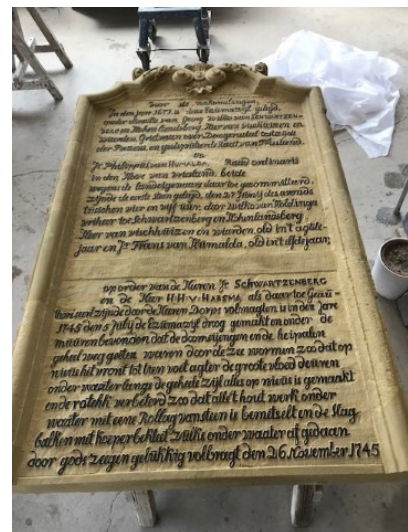 voor de nakomelingen,
In den jaar 1671 is de Ezumazijl gelegd,
onder directie van Georg Wilko van SCHWARTZEN-
BERG en Hohenlandsberg Heer van Vischhuizen en
Wierden, Grietman over Dongeradeel ten
der Possessi, en gedeputeerde Staat van Friesland.
en
Jr. Philippus van HUMALDA. Raad
in den Hove van Vriesland, beide
wegens de landeigenaars daar toe gecommitteerd,
zijnde de eerste steen gelegd, den 27 Junij des avonds
tusschen vier en vijf uur, door Wilko van Holdinga
vrijheer toe Schwartzenberg en Hohenlansberg
Heer van vischhuizen en wierden, old in't agtste
jaar en Jr. Frans van Humalda, old int elfde jaar;
op order van de Heeren Jr SCHWARTZENBERG
en de Heer H.H.V. HAERSMA als daar toe
zijnde door de Heren Dorps volmagten is in den jare
1745 den 5 July de Ezumazijl droog gemaakt en onder de
muuren bevonden dat de doomsijngen en de heipalen
geheel weg geëten waren door de zee wormen zoo dat op
nieuw het vront tot tien voet agter de groote vloed deuren
onder waater langs de geheele zijl alles op nieus is gemaakt
en de verbeterd zoo dat alle't hout werk onder
waater met eene Rollag van steen is bemetselt en de slag
balken met koeper bekleit zulks onder waater af gedaan
door gods zeegen gelukkig volbragt den 26. november 1745